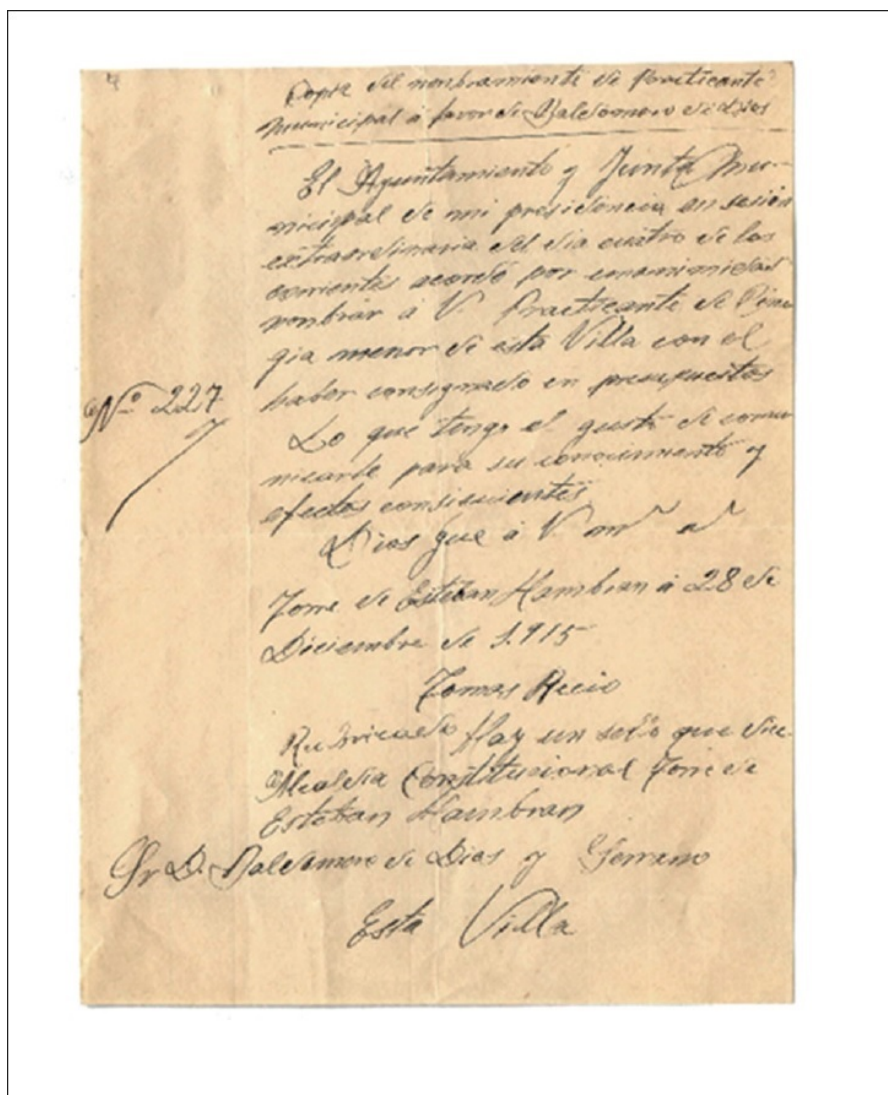 Copia del nombramiento de Practicante
municipal á favor de Baldomero de Dios
El Ayuntamiento y Junta Mu-
nicipal de mi presidencia en sesión
extraordinaria del dia cuatro de los
corrientes acordó por unanimidad
nombrar á V. Practicante de
gia menor de esta Villa con el
haber consignado en presupuestos
Nº 227
Lo que tengo el gusto de comu
nicarle para su conocimiento y
efectos consiguientes
Dios gue á V. mˢ aˢ
Torre de Esteban Hambran á 28 de
Diciembre de 1.915
Tomas Recio
Rubricado Hay un sello que dice
Alcaldia Constitucional Torre de
Esteban Hambran
Sr D. Baldomero de Dios y Serrano
Esta Villa